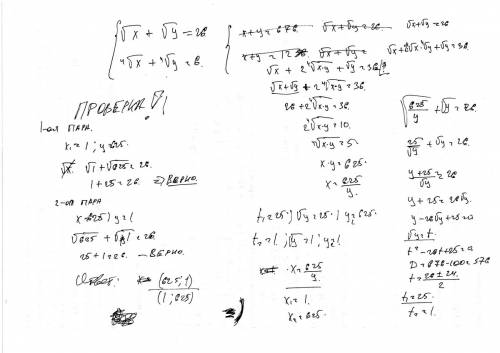 √x + √y = 26
⁴√x + ⁴√y = 6.
x+y=676 √x+√y=26 √x+√y=26
√x+√y= √x+2⁴√x·⁴√y+√y=36.
√x + 2⁴√x·y + √y = 36
√x+√y + 2⁴√x·y = 36.
26 + 2⁴√x·y = 36.
2⁴√x·y = 10.
⁴√x·y = 5.
x·y = 625.
x = 625/y.
√(625/y) + √y = 26.
25/√y + √y = 26.
(y+25)/√y = 26
y + 25 = 26√y.
y - 26√y + 25 = 0
√y = t.
t² - 26t + 25 = 0
D = 676 - 100 = 576
t = (26 ± 24)/2
t₁ = 25.
t₂ = 1.
t₁ = 25; √y = 25; y = 625.
t₂ = 1; √y = 1; y = 1.
x = 625/y.
x₁ = 1.
x₂ = 625.
ПРОВЕРКА!
1-ая ПАРА.
x = 1; y = 625.
√1 + √625 = 26.
1 + 25 = 26. => ВЕРНО.
2-ая ПАРА
x = 625; y = 1
√625 + √1 = 26
25 + 1 = 26. - ВЕРНО.
Ответ: (625; 1)
(1; 625)